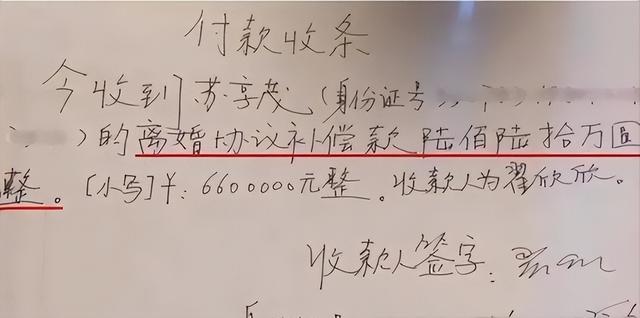 付款收条
今收到苏享茂（身份证号
）的离婚协议补偿款陆佰陆拾万圆
整。[小写]￥：6600000元整。收款人为翟欣欣。
收款人签字：